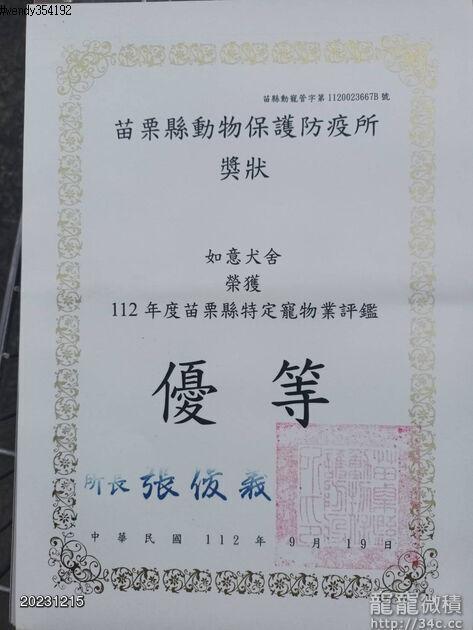 #wendy354192
苗縣動寵管字第1120023667B號
苗栗縣動物保護防疫所
獎狀
如意犬舍
榮獲
112年度苗栗縣特定寵物業評鑑
優等
所長 張俊義
中華民國 112 年 9 月 19 日
20231215
龍龍微積
http://34c.cc